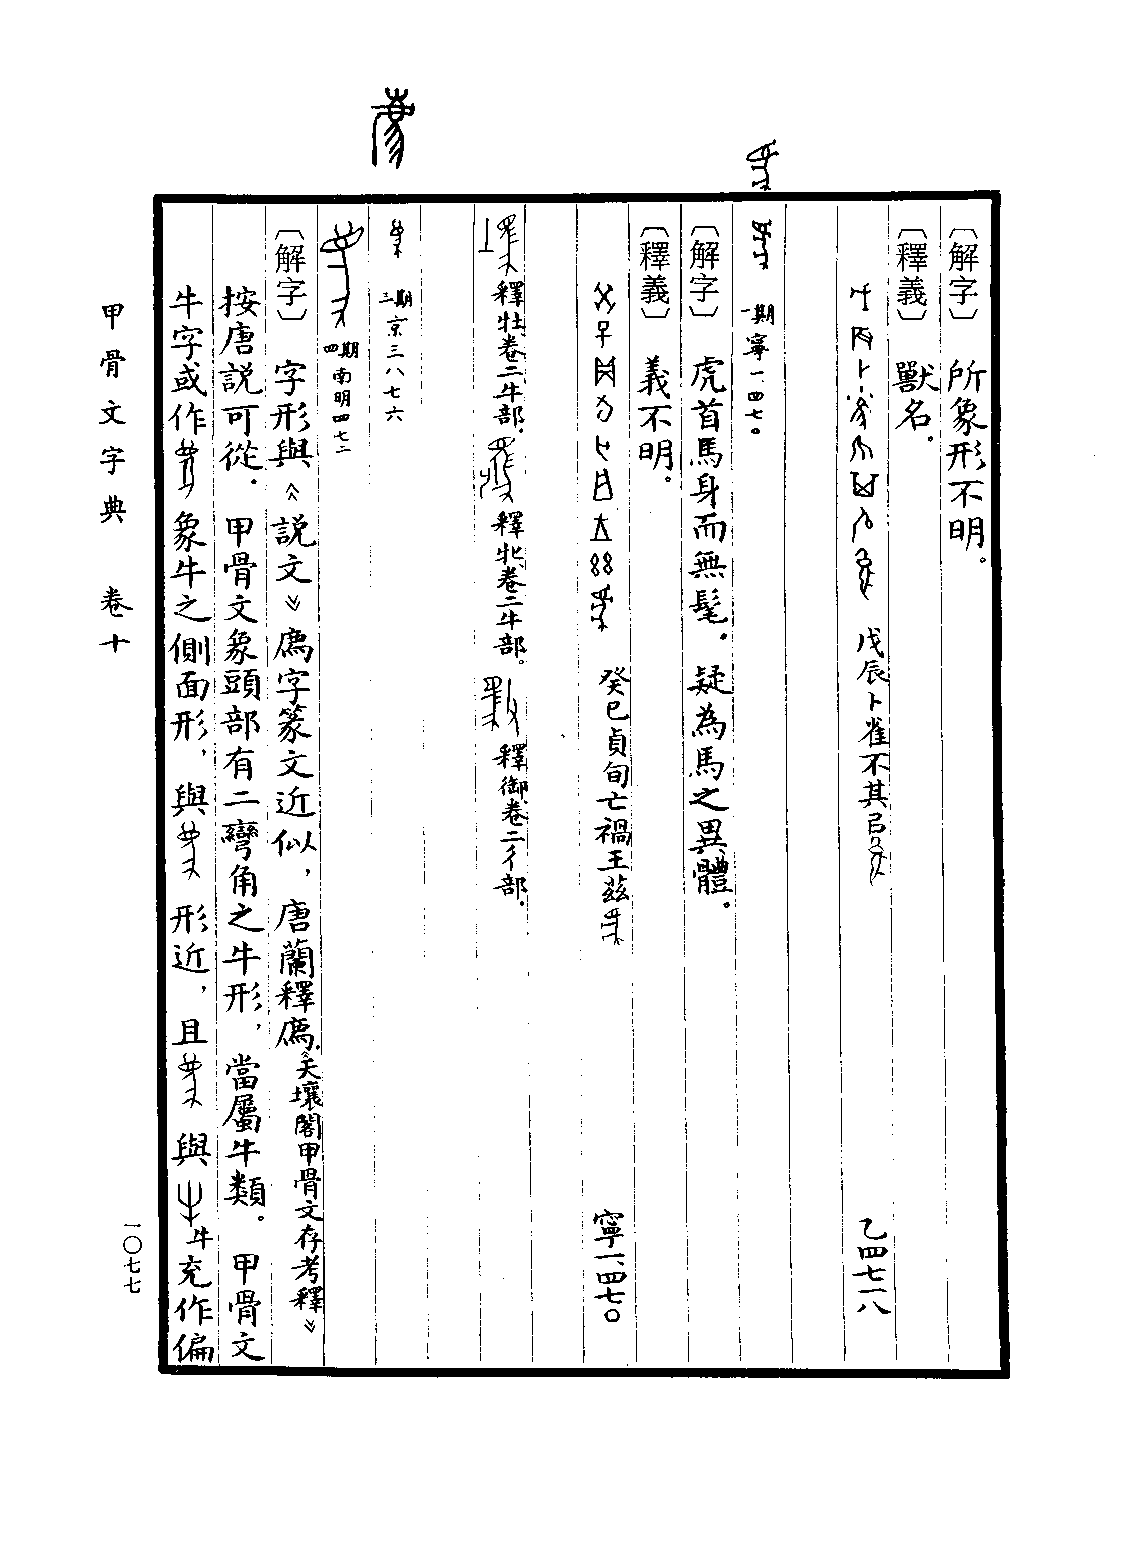 〔解字〕 所象形不明。
〔釋義〕 獸名。
戊辰卜雀不其㠯 乙四七一八
一期 寧一、四七〇
〔解字〕 虎首馬身而無髦。疑為馬之異體。
〔釋義〕 義不明。
癸巳貞旬亡禍王茲 寧一、四七〇
釋牡、卷二牛部。 釋牝、卷二牛部。 釋御、卷二彳部。
三期 京三八七六
四期 南明四七二
〔解字〕 字形與《說文》廌字篆文近似，唐蘭釋廌。《天壤閣甲骨文存考釋》
按唐說可從。甲骨文象頭部有二彎角之牛形，當屬牛類。甲骨文
牛字或作 象牛之側面形，與 形近，且 與 牛充作偏
甲骨文字典 卷十
一〇七七